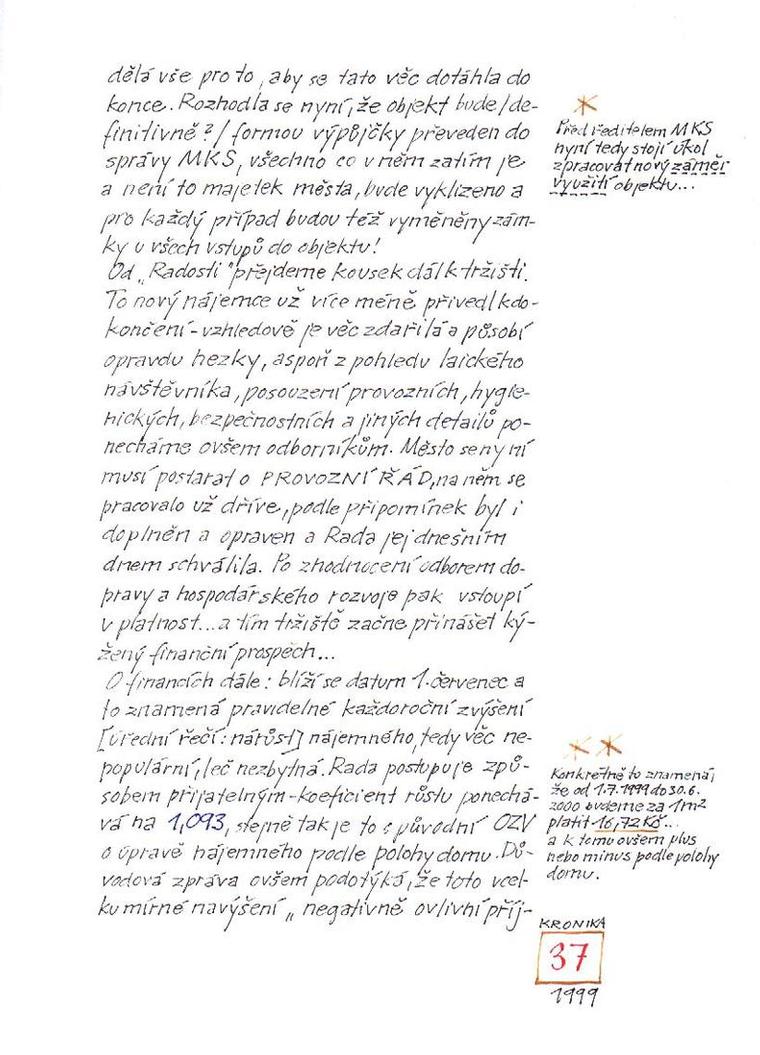 dělá vše pro to, aby se tato věc dotáhla do
konce. Rozhodla se nyní, že objekt bude /de-
finitivně?/ formou výpůjčky převeden do
správy MKS, všechno co v něm zatím je
a není to majetek města, bude vyklizeno a
pro každý případ budou též vyměněny zám-
ky u všech vstupů do objektu!
Od „Radosti" přejdeme kousek dál k tržišti.
To nový nájemce už více méně přivedl k do-
končení - vzhledově je věc zdařilá a působí
opravdu hezky, aspoň z pohledu laického
návštěvníka, posouzení provozních, hygie-
nických, bezpečnostních a jiných detailů po-
necháme ovšem odborníkům. Město se nyní
musí postarat o PROVOZNÍ ŘÁD, na něm se
pracovalo už dříve, podle připomínek byl i
doplněn a opraven a Rada jej dnešním
dnem schválila. Po zhodnocení odborem do-
pravy a hospodářského rozvoje pak vstoupí
v platnost... a tím tržiště začne přinášet ký-
žený finanční prospěch...
O financích dále: blíží se datum 1. červenec a
to znamená pravidelné každoroční zvýšení
[úřední řečí: nárůst] nájemného, tedy věc ne-
populární, leč nezbytná. Rada postupuje způ-
sobem přijatelným - koeficient růstu ponechá-
vá na 1,093, stejně tak je to s původní OZV
o úpravě nájemného podle polohy domu. Dů-
vodová zpráva ovšem podotýká, že toto vcel-
ku mírné navýšení „negativně ovlivní příj-
*
Před ředitelem MKS
nyní tedy stojí úkol
zpracovat nový záměr
využití objektu...
**
Konkrétně to znamená,
že od 1.7.1999 do 30.6.
2000 budeme za 1m²
platit 16,72 Kč...
a k tomu ovšem plus
nebo minus podle polohy
domu.
KRONIKA
37
1999